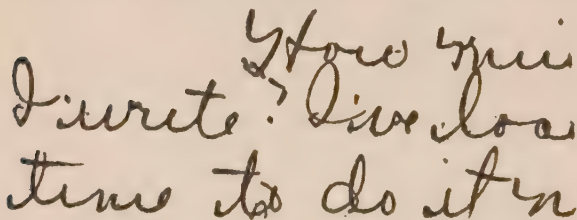 How
I write? I've loa
time to do it n